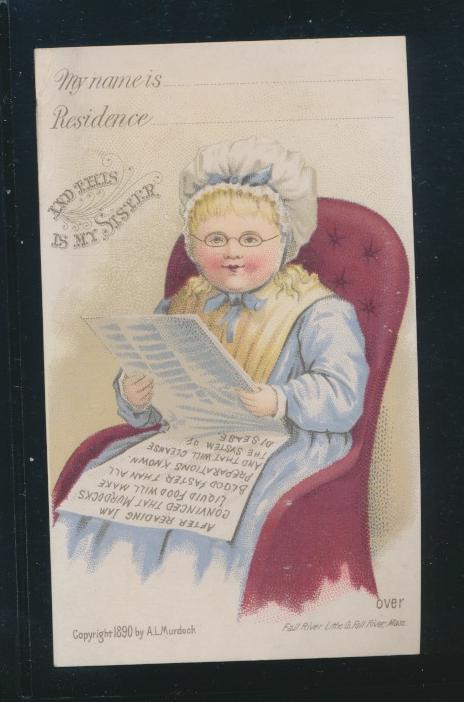 My name is
Residence
AND THIS
IS MY SISTER
AFTER READING IAM
CONVINCED THAT MURDOCKS
LIQUID FOOD WILL MAKE
BLOOD FASTER THAN ALL
PREPARATIONS KNOWN.
AND THAT WILL CLEANSE
THE SYSTEM OF
DISEASE
over
Copyright 1890 by A.L. Murdock
Fall River Litho. Co. Fall River, Mass.